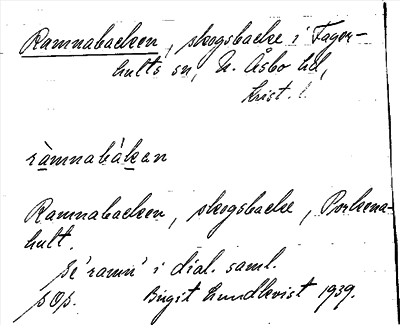 Ramnabacken, skogsbacke i Fager-
hults sn, N. Åsbo hd,
Krist. l.
ràmnabákan
Ramnabacken, skogsbacke, Porkena-
hult.
Se 'ramn' i dial. saml.
sOs. Birgit Lundkvist 1939.